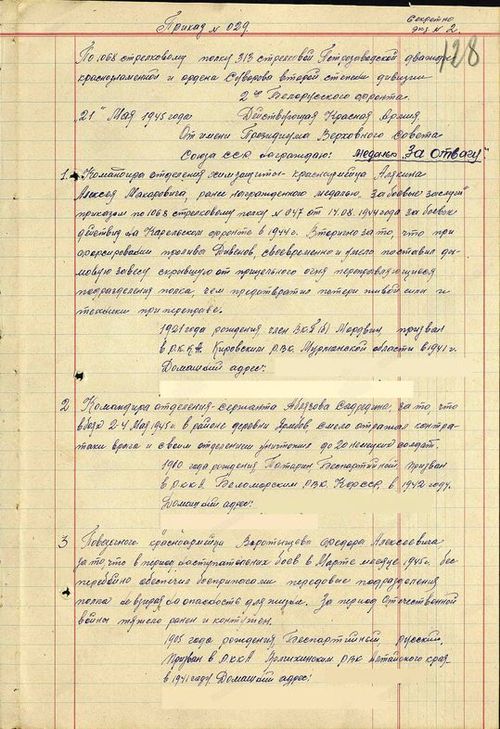 Приказ № 029.
Секретно
экз № 2.
128
По 1068 стрелковому полку 313 стрелковой Петрозаводской дважды
краснознаменной и ордена Суворова второй степени дивизии
2го Белорусского фронта.
21" Мая 1945 года. Действующая Красная Армия
От имени Президиума Верховного Совета
Союза ССР награждаю: медалью "За отвагу"
1. Командира отделения химзащиты - красноармейца
Алексея Макаровича, ранее награжденного медалью "За боевые заслуги"
приказом по 1068 стрелковому полку № 047 от 14.08.1944 года за боевые
действия на Карельском фронте в 1944 г. Вторично за то, что при
форсировании пролива Дивенов своевременно и умело поставил ды-
мовую завесу скрывшую от прицельного огня переправляющиеся
подразделения полка, чем предотвратил потери живой силы и
техники при переправе.
1921 года рождения член ВКП(б) Мордвин призван
в Р.К.К.А. Кировским Р.В.К. Мурманской области в 1941 г.
Домашний адрес:
2 Командира отделения - сержанта Аблязова за то, что
в боях 2-4 Мая 1945 г. в районе деревни смело отражая контр-
атаки врага и своим отделением уничтожил до 20 немецких солдат.
1910 года рождения Татарин Беспартийный призван
в РККА Беломорским Р.В.К. КФССР в 1942 году.
Домашний адрес:
3 Повозочного красноармейца Воротынцева Федора Алексеевича
за то, что в период наступательных боев в Марте месяце 1945 г. бес-
перебойно обеспечил боеприпасами передовые подразделения
полка невзирая на опасность для жизни. За период Отечественной
войны тяжело ранен и контужен.
1905 года рождения Беспартийный русский,
призван в РККА Р.В.К. Алтайского края
в 1941 году Домашний адрес: